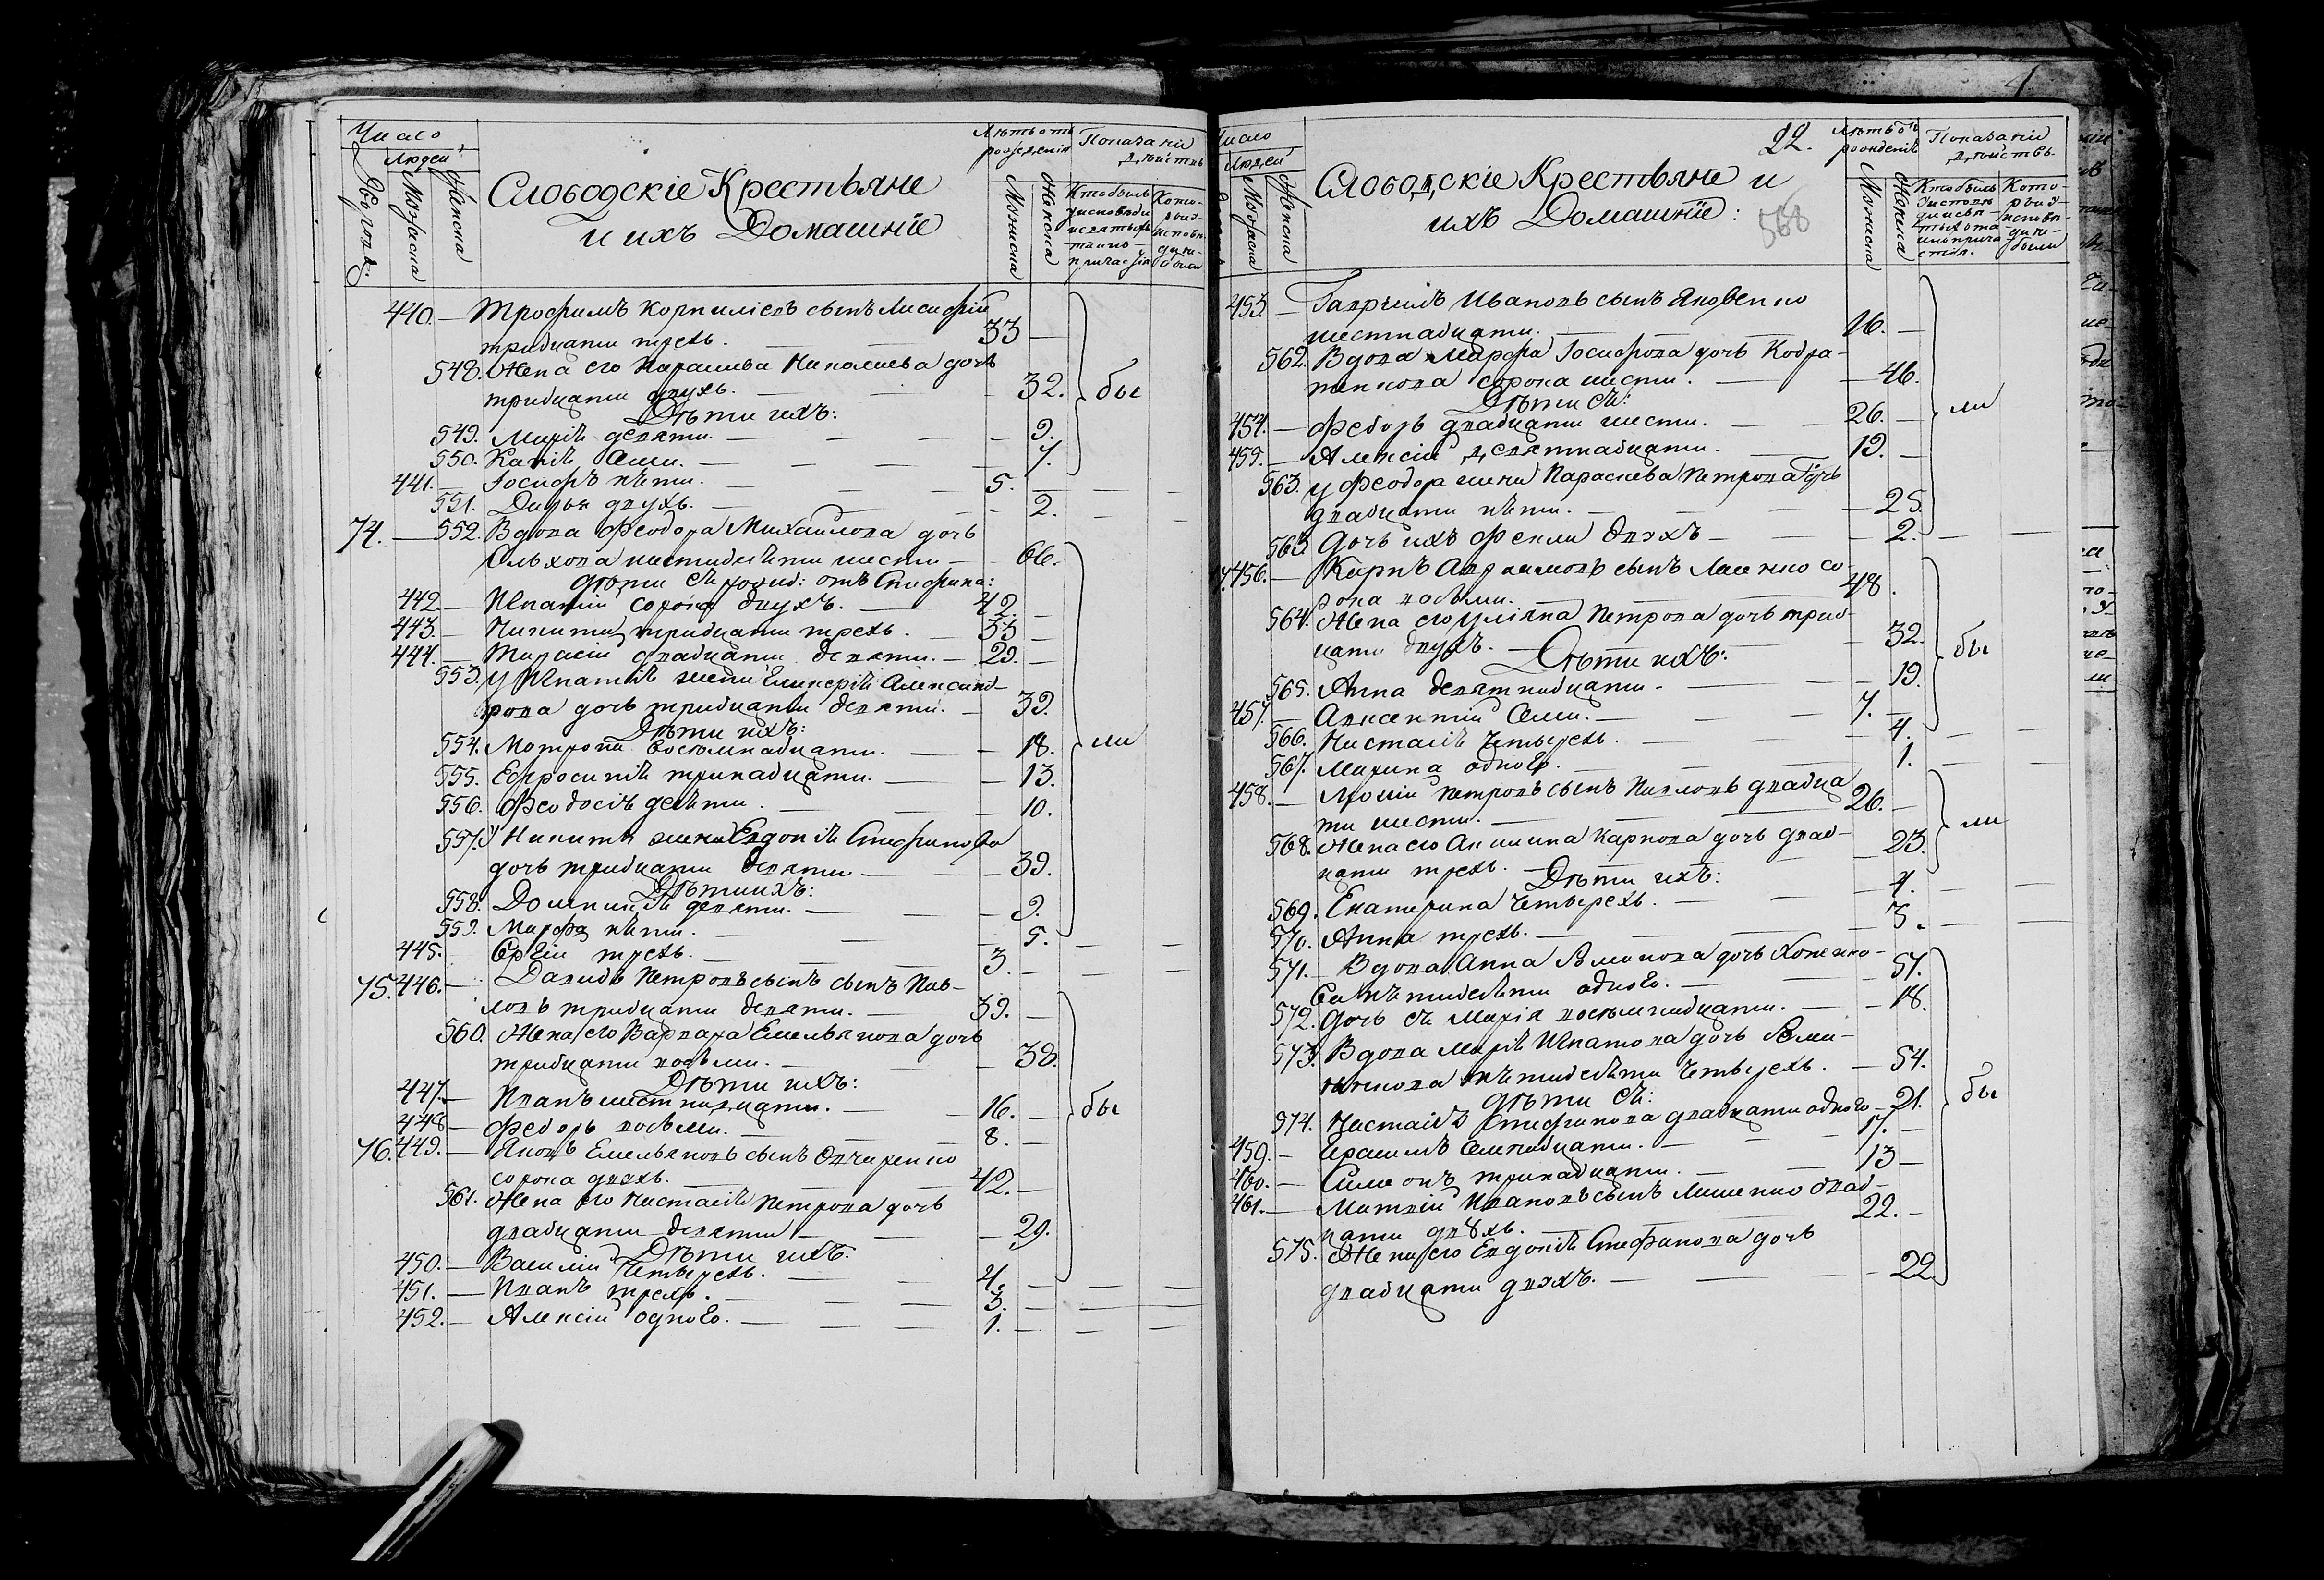 Число
Людей
Дворовъ.
Мужеска
Женска
Слободскіе Крестьяне
и ихъ Домашніе
Лѣтъ отъ
рожденія
Мужеска
Женска
Показаніи
дѣйствъ
Кто былъ
у исповѣди
и святыхъ
таинъ
причастія
Кото-
рые
исповѣ-
ди не
были
440. — Трофимъ Корниліевъ сынъ
тридцати трехъ. — 33 —
548. Жена его Параскева Николаева дочь
тридцати двухъ. — 32. бы
Дѣти ихъ:
549. Марія девяти. — 9.
550. Ксенія семи. — 7.
441. — Іосифъ пяти. — 5. —
551. Дарья двухъ. — 2. —
74. — 552. Вдова Феодора Михайлова дочь
Ольхова шестидесяти шести — 66.
дѣти ея рожд: отъ Стефана:
442. — Игнатій сорока двухъ. — 42. —
443. — Никита тридцати трехъ. — 33 —
444. — Тарасій двадцати девяти. — 29. —
553. У Игнатія жена Гликерія Александ-
рова дочь тридцати девяти. — 39.
Дѣти ихъ:
554. Мотрона восемнадцати. — 18. ли
555. Ефросинія тринадцати. — 13.
556. Феодосія десяти. — 10.
557. У Никиты жена Евдокія Стефанова
дочь тридцати девяти — 39.
Дѣти ихъ:
558. Домникія девяти. — 9.
559. Марфа пяти. — 5. —
445. Сергій трехъ. — 3. —
75. 446. — Давидъ Петровъ сынъ сынъ Пав-
ловъ тридцати девяти. — 39. —
560. Жена его Варвара Емельянова дочь
тридцати восьми. — 38.
Дѣти ихъ:
447. — Иванъ шестнадцати. — 16. — бы
448 — Федоръ восьми. — 8. —
76. 449. — Яковъ Емельяновъ сынъ Овчаренко
сорока двохъ. — 42. —
561. Жена его Настасія Петрова дочь
двадцати девяти — 29.
Дѣти ихъ:
450. — Василій четырехъ. — 4. —
451. — Иванъ трехъ. — 3. —
452. — Алексій одного. — 1. —
Число
Людей
Мужеска
Женска
Слободскіе Крестьяне и
ихъ Домашніе:
22.
568
Лѣтъ отъ
рожденія
Мужеска
Женска
Показаніи
дѣйствъ.
Кто былъ
Кото-
рые
исповѣ-
ди не
были
453. — Гавріилъ Ивановъ сынъ Яковенко
шестнадцати. — 16. —
562. Вдова Марфа Іосифова дочь Кодра-
тенкова сорока шести. — 46.
Дѣти ея:
454. — Федоръ двадцати шести. — 26. — ли
455. — Алексій девятнадцати. — 19. —
563. у Феодора жена Параскева Петрова дочь
двадцати пяти. — 25.
563. Дочь ихъ Фекли двохъ — 2. —
456. — Карпъ сынъ со-
рока восьми. — 48.
564. Жена его Уліяна Петрова дочь трид-
цати двухъ. — 32. бы
Дѣти ихъ:
565. Анна девятнадцати. — 19.
457. — Авксентій семи. — 7. —
566. Настасія четырехъ. — 4. —
567. Марина одного. — 1. —
458. — Петровъ сынъ Павловъ двадца
ти шести. — 26. —
568. Жена его Анисина Карпова дочь двад-
цати трехъ. — 23. ли
Дѣти ихъ:
569. Екатерина четырехъ. — 4. —
570. Анна трехъ. — 3. —
571. — Вдова Анна дочь
пятидесяти одного. — 51.
572. Дочь ея Марія восемнадцати. — 18.
573. Вдова Марія Игнатова дочь
пятидесяти четырехъ. — 54.
дѣти ея: бы
574. Настасія Стефанова двадцати одного — 21.
459. — Герасимъ семнадцати. — 17. —
460. — Симеонъ тринадцати. — 13 —
461. — Матвій Ивановъ сынъ двад-
цати двохъ. — 22. —
575. Жена его Евдокія Стефанова дочь
двадцати двохъ. — 22